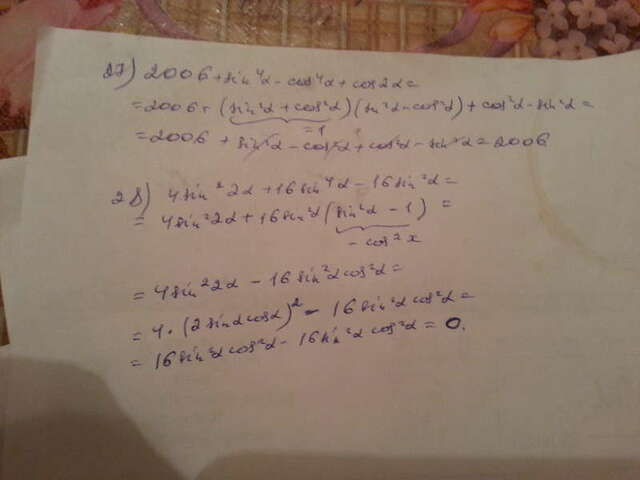 27) 2006 + sin⁴α - cos⁴α + cos2α =
= 2006 + (sin²α + cos²α)(sin²α - cos²α) + cos²α - sin²α =
= 1
= 2006 + sin²α - cos²α + cos²α - sin²α = 2006
28) 4sin²2α + 16sin⁴α - 16sin²α =
= 4sin²2α + 16sin²α (sin²α - 1) =
- cos²x
= 4sin²2α - 16sin²αcos²α =
= 4·(2sinαcosα)² - 16sin²αcos²α =
= 16sin²αcos²α - 16sin²αcos²α = 0.